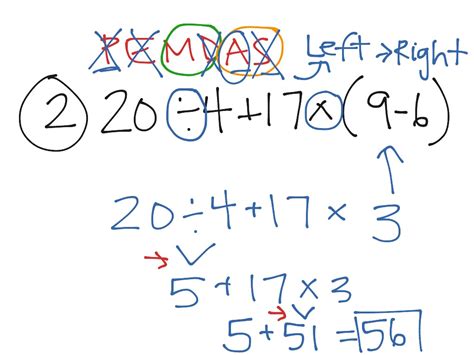 PEMDAS Left → Right
2 20 ÷ 4 + 17 × (9-6)
20 ÷ 4 + 17 × 3
5 + 17 × 3
5 + 51 = 56